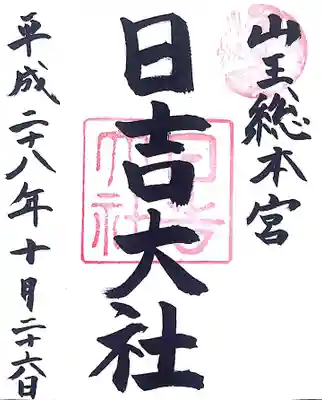 山王総本宮
日吉大社
平成二十八年十月二十六日
日吉大社